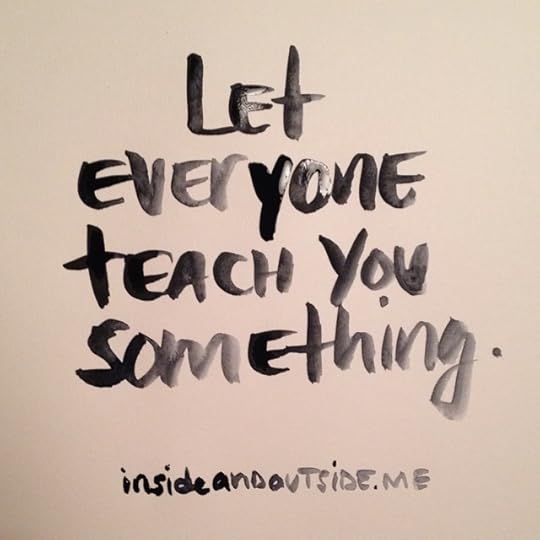 Let
EVERYONE
tEACH YOU
SOMEthing.
insideANDOUTSIDE.ME